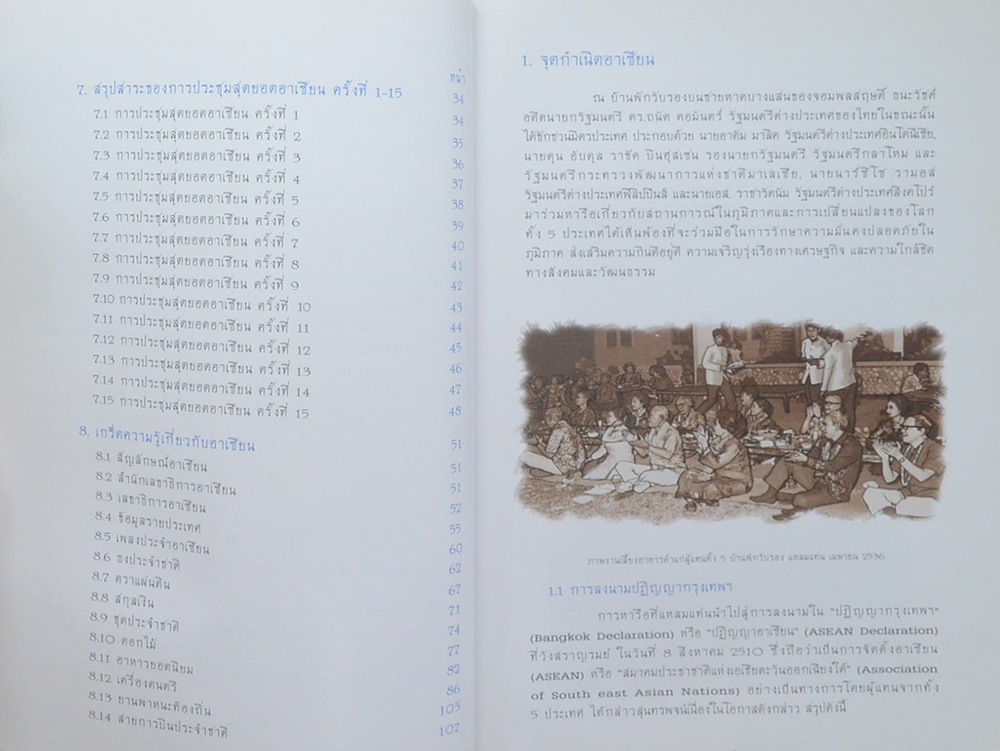 หน้า
7. สรุปสาระของการประชุมสุดยอดอาเซียน ครั้งที่ 1-15 34
7.1 การประชุมสุดยอดอาเซียน ครั้งที่ 1 34
7.2 การประชุมสุดยอดอาเซียน ครั้งที่ 2 35
7.3 การประชุมสุดยอดอาเซียน ครั้งที่ 3 36
7.4 การประชุมสุดยอดอาเซียน ครั้งที่ 4 37
7.5 การประชุมสุดยอดอาเซียน ครั้งที่ 5 38
7.6 การประชุมสุดยอดอาเซียน ครั้งที่ 6 39
7.7 การประชุมสุดยอดอาเซียน ครั้งที่ 7 40
7.8 การประชุมสุดยอดอาเซียน ครั้งที่ 8 41
7.9 การประชุมสุดยอดอาเซียน ครั้งที่ 9 42
7.10 การประชุมสุดยอดอาเซียน ครั้งที่ 10 43
7.11 การประชุมสุดยอดอาเซียน ครั้งที่ 11 44
7.12 การประชุมสุดยอดอาเซียน ครั้งที่ 12 45
7.13 การประชุมสุดยอดอาเซียน ครั้งที่ 13 46
7.14 การประชุมสุดยอดอาเซียน ครั้งที่ 14 47
7.15 การประชุมสุดยอดอาเซียน ครั้งที่ 15 48
8. เกร็ดความรู้เกี่ยวกับอาเซียน 51
8.1 สัญลักษณ์อาเซียน 51
8.2 สำนักเลขาธิการอาเซียน 51
8.3 เลขาธิการอาเซียน 52
8.4 ข้อมูลรายประเทศ 55
8.5 เพลงประจำอาเซียน 60
8.6 ธงประจำชาติ 62
8.7 ตราแผ่นดิน 67
8.8 สกุลเงิน 71
8.9 ชุดประจำชาติ 74
8.10 ดอกไม้ 77
8.11 อาหารยอดนิยม 82
8.12 เครื่องดนตรี 86
8.13 ยานพาหนะท้องถิ่น 105
8.14 สายการบินประจำชาติ 107
1. จุดกำเนิดอาเซียน
ณ บ้านพักรับรองบนชายหาดบางแสนของจอมพลสฤษดิ์ ธนะรัชต์
อดีตนายกรัฐมนตรี ดร.ถนัด คอมันตร์ รัฐมนตรีต่างประเทศของไทยในขณะนั้น
ได้ชักชวนมิตรประเทศ ประกอบด้วย นายอาดัม มาลิค รัฐมนตรีต่างประเทศอินโดนีเซีย,
นายตุน อับดุล ราซัค บินฮุสเซน รองนายกรัฐมนตรี รัฐมนตรีกลาโหม และ
รัฐมนตรีกระทรวงพัฒนาการแห่งชาติมาเลเซีย, นายนาร์ซิโซ รามอส
รัฐมนตรีต่างประเทศฟิลิปปินส์ และนายเอส. ราชารัตนัม รัฐมนตรีต่างประเทศสิงคโปร์
มาร่วมหารือเกี่ยวกับสถานการณ์ในภูมิภาคและการเปลี่ยนแปลงของโลก
ทั้ง 5 ประเทศได้เห็นพ้องที่จะร่วมมือในการรักษาความมั่นคงปลอดภัยใน
ภูมิภาค ส่งเสริมความกินดีอยู่ดี ความเจริญรุ่งเรืองทางเศรษฐกิจ และความใกล้ชิด
ทางสังคมและวัฒนธรรม
ภาพงานเลี้ยงอาหารค่ำแก่ผู้แทนทั้ง 5 บ้านพักรับรอง แหลมแท่น เมษายน 2536
1.1 การลงนามปฏิญญากรุงเทพฯ
การหารือที่แหลมแท่นนำไปสู่การลงนามใน "ปฏิญญากรุงเทพฯ"
(Bangkok Declaration) หรือ "ปฏิญญาอาเซียน" (ASEAN Declaration)
ที่วังสราญรมย์ ในวันที่ 8 สิงหาคม 2510 ซึ่งถือว่าเป็นการจัดตั้งอาเซียน
(ASEAN) หรือ "สมาคมประชาชาติแห่งเอเชียตะวันออกเฉียงใต้" (Association
of South east Asian Nations) อย่างเป็นทางการโดยผู้แทนจากทั้ง
5 ประเทศ ได้กล่าวสุนทรพจน์เนื่องในโอกาสดังกล่าว สรุปดังนี้